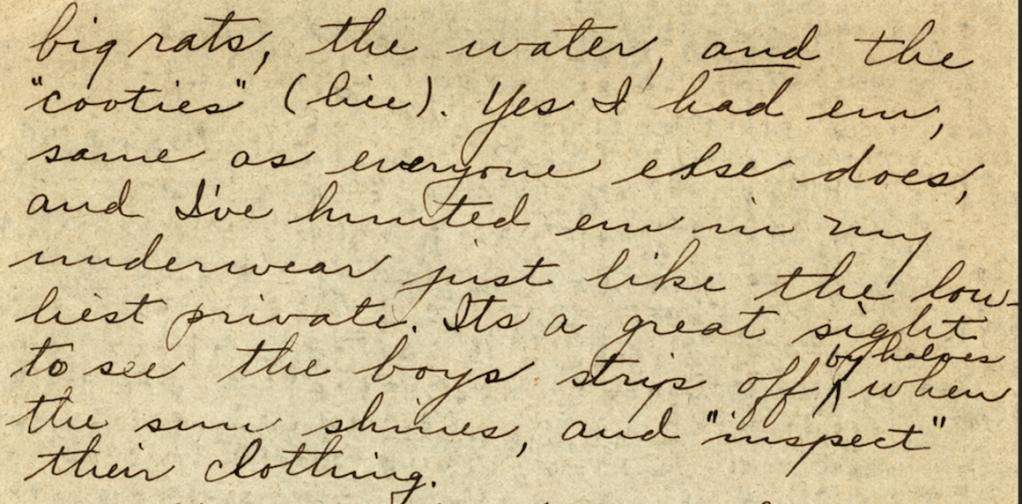 big rats, the water, and the
"cooties" (lice). Yes I had em,
same as everyone else does,
and I've hunted em in my
underwear just like the low-
liest private. Its a great sight
to see the boys strip off by halves when
the sun shines, and "inspect"
their clothing.